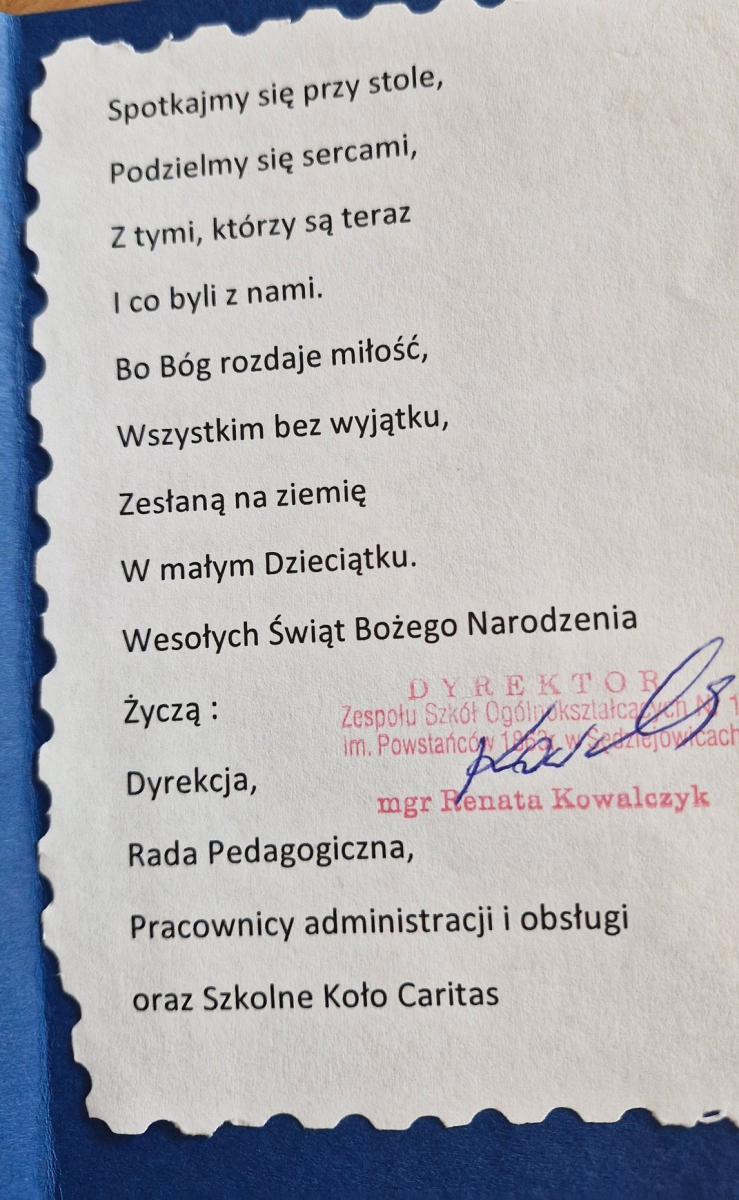 Spotkajmy się przy stole,
Podzielmy się sercami,
Z tymi, którzy są teraz
I co byli z nami.
Bo Bóg rozdaje miłość,
Wszystkim bez wyjątku,
Zesłaną na ziemię
W małym Dzieciątku.
Wesołych Świąt Bożego Narodzenia
Życzą :
DYREKTOR
Zespołu Szkół Ogólnokształcących Nr 1
im. Powstańców 1863r. w Sędziejowicach
mgr Renata Kowalczyk
Dyrekcja,
Rada Pedagogiczna,
Pracownicy administracji i obsługi
oraz Szkolne Koło Caritas